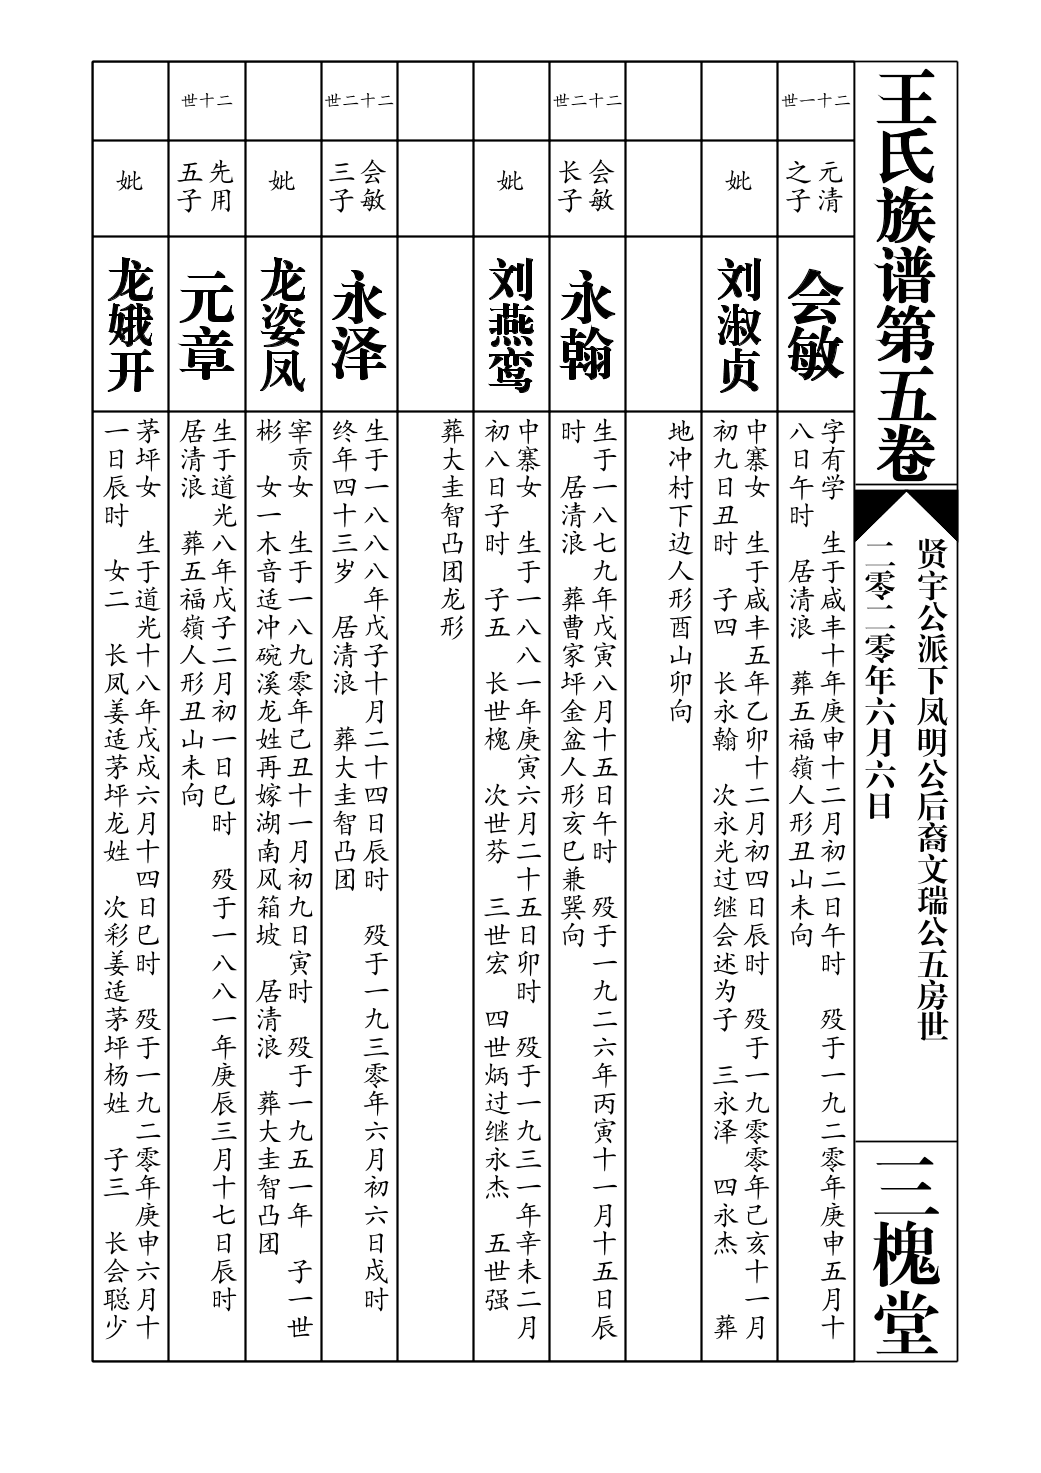 王氏族谱第五卷
贤宇公派下凤明公后裔文瑞公五房世
二零二零年六月六日
三槐堂
二十一世
元清
之子
会敏
字有学　生于咸丰十年庚申十二月初二日午时　殁于一九二零年庚申五月十
八日午时　居清浪　葬五福嶺人形丑山未向
妣
刘淑贞
中寨女　生于咸丰五年乙卯十二月初四日辰时　殁于一九零零年己亥十一月
初九日丑时　子四　长永翰　次永光过继会述为子　三永泽　四永杰　　葬
地冲村下边人形酉山卯向
二十二世
会敏
长子
永翰
生于一八七九年戊寅八月十五日午时　殁于一九二六年丙寅十一月十五日辰
时　居清浪　葬曹家坪金盆人形亥巳兼巽向
妣
刘燕鸾
中寨女　生于一八八一年庚寅六月二十五日卯时　殁于一九三一年辛未二月
初八日子时　子五　长世槐　次世芬　三世宏　四世炳过继永杰　五世强
葬大圭智凸团龙形
二十二世
会敏
三子
永泽
生于一八八八年戊子十月二十四日辰时　殁于一九三零年六月初六日戍时
终年四十三岁　居清浪　葬大圭智凸团
妣
龙姿凤
宰贡女　生于一八九零年己丑十一月初九日寅时　殁于一九五一年　子一世
彬　女一木音适冲碗溪龙姓再嫁湖南风箱坡　居清浪　葬大圭智凸团
二十世
先用
五子
元章
生于道光八年戊子二月初一日巳时　殁于一八八一年庚辰三月十七日辰时
居清浪　葬五福嶺人形丑山未向
妣
龙娥开
茅坪女　生于道光十八年戊戍六月十四日巳时　殁于一九二零年庚申六月十
一日辰时　女二　长凤姜适茅坪龙姓　次彩姜适茅坪杨姓　子三　长会聪少